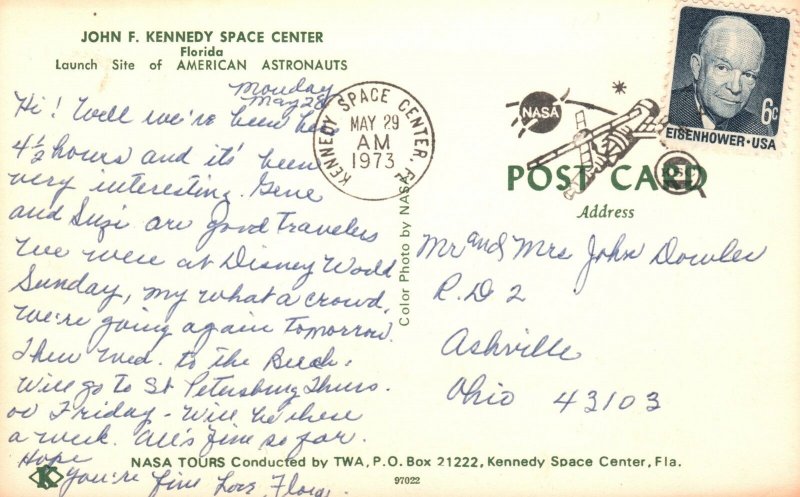 JOHN F. KENNEDY SPACE CENTER
Florida
Launch Site of AMERICAN ASTRONAUTS
Monday
May 28
Hi! Well we're been here
4 1/2 hours and it's been
very interesting. Gene
and Suzi are good travelers
We were at Disney World
Sunday, my what a crowd.
We're going again tomorrow.
Then Wed. to the Beach.
Will go to St Petersburg Thurs.
or Friday - Will be there
a week. All's fine so far.
Hope
you're fine Love, Flora
KENNEDY SPACE CENTER, FL
MAY 29
AM
1973
NASA
EISENHOWER · USA
6c
POST CARD
Address
Mr and Mrs John Dowler
R.D 2
Ashville
Ohio 43103
Color Photo by NASA
NASA TOURS Conducted by TWA, P.O. Box 21222, Kennedy Space Center, Fla.
K
97022